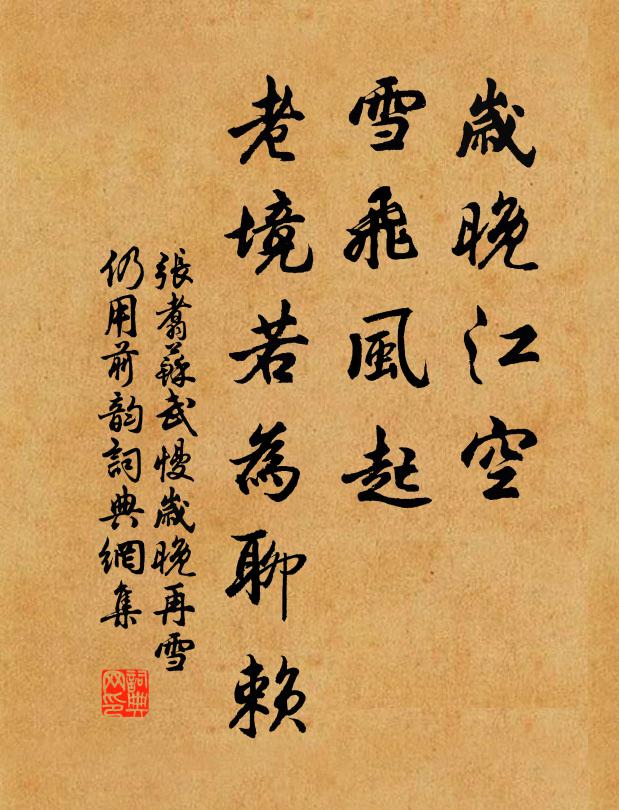 歲晚江空
雪飛風起
老境若為聊賴
張翥蘇武慢歲晚再雪
仍用前韵詞典網集
詞典网印